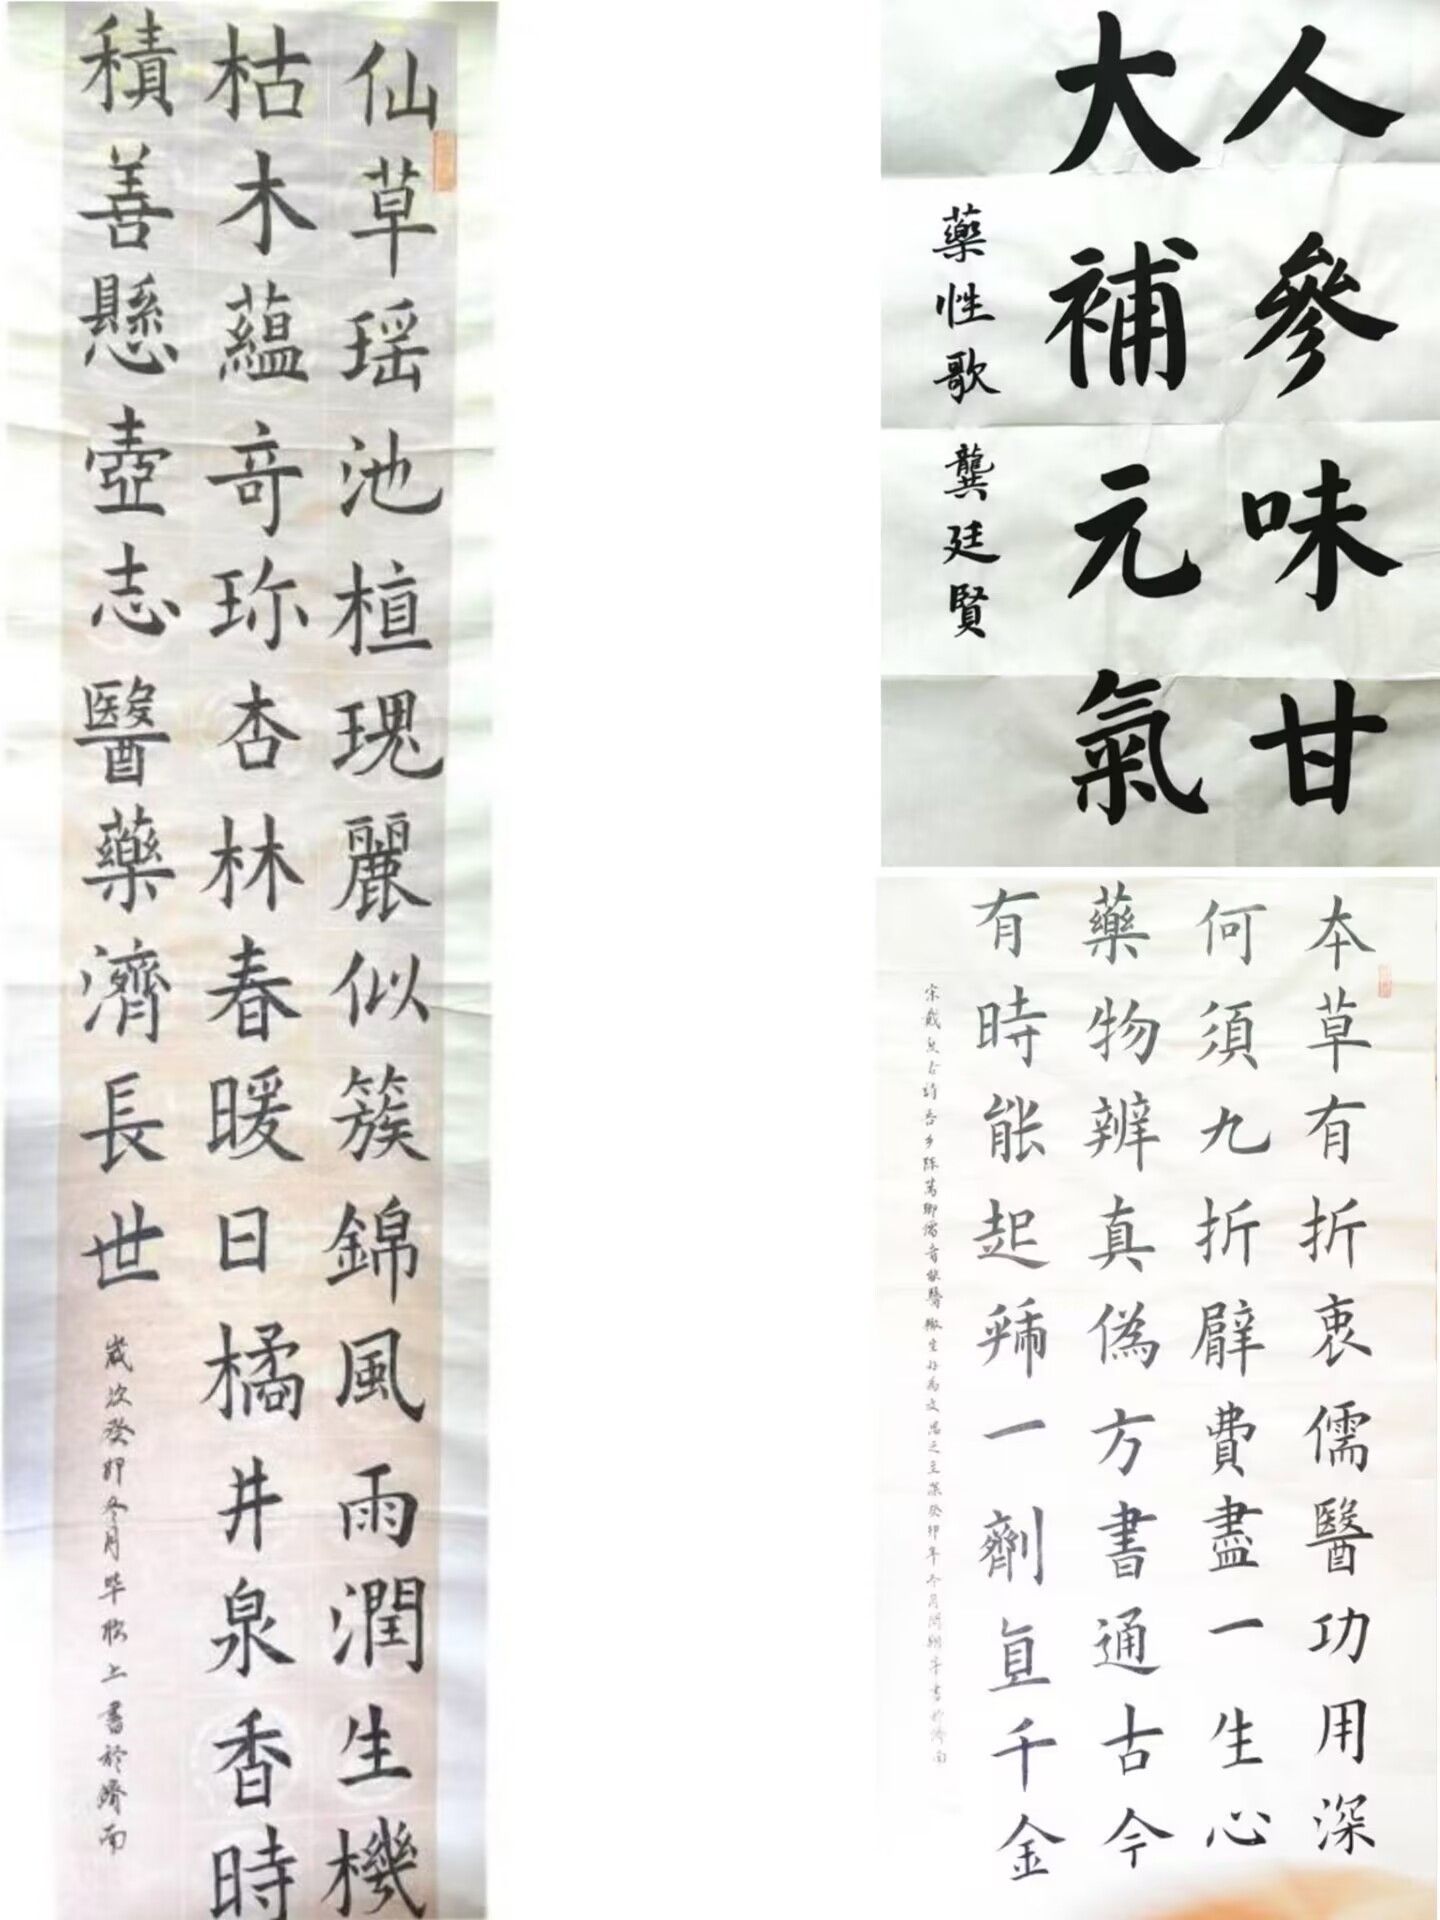 仙草瑶池植瑰麗似簇錦風雨潤生機
枯木蘊奇珎杏林春暖日橘井泉香時
積善懸壺志醫藥濟長世
歲次癸卯冬月毕松上書於濟南
人參味甘
大補元氣
藥性歌 龔廷賢
本草有折衷儒醫功用深
何須九折臂費盡一生心
藥物辨真偽方書通古今
有時能起𤺊一劑直千金